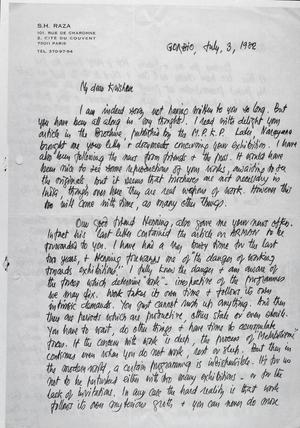 S.H. RAZA
101, RUE DE CHARONNE
2, CITÉ DU COUVENT
75011 PARIS
TEL. 370-97-94
GORBIO, July, 3, 1982
My dear Krishen
I am indeed sorry not having written to you so long. But
you have been all along in my thoughts. I read with delight your
article in the Brochure, published by the M.P.K.P. Later, Narayana
brought me your letter & documents concerning your exhibition. I have
also been following the news from friends & the press. It would have
been nice to see some reproductions of your works, awaiting to see
the originals but it seems that brochures are not necessary in
India though over here they are real weapons of work. However this
too will come with time, as many other things.
Our good friend Henning, also gave me your news often.
Infact his last letter contained the article on to be
forwarded to you. I have had a very busy time for the last
two years, & Henning forewarns me of the dangers of working
towards exhibitions" I fully know the danger & am aware of
the forces which determine work - irrespective of the programmes
we may fix. Work takes its own time & follows its own
intrinsic demands. You just cannot push up anything. And then
there are periods which are productive, other stale or even sterile.
You have to wait, do other things & have time to accumulate
forces. If the concern with work is deep, the process of
continues even when you do not work, rest or sleep. But then in
the modern world, a certain programming is indispensible. It's for us
not to be perturbed either with too many exhibitions - or for the
lack of invitations. In any case the hard reality is that work
follows its own mysterious path, & you can never do more